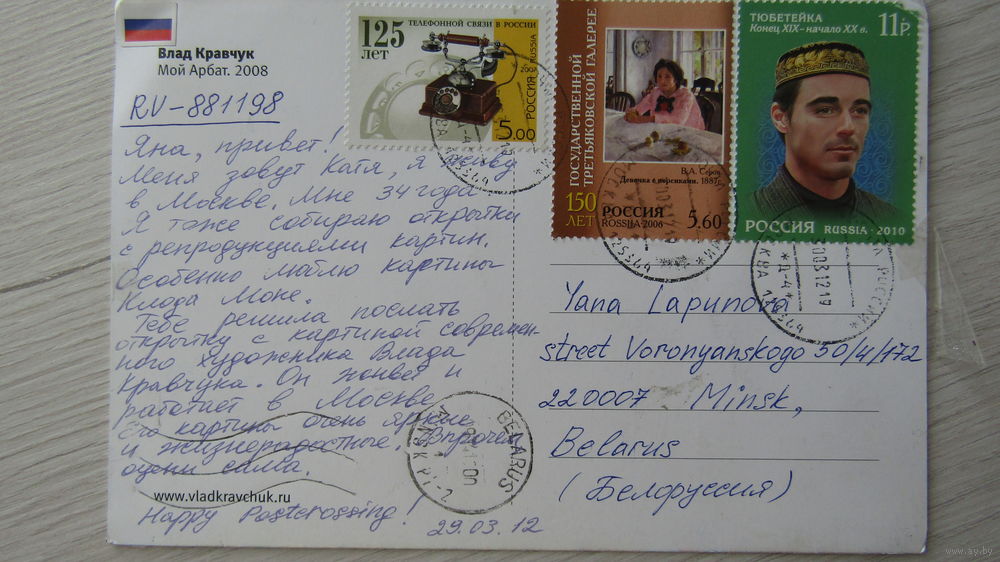 Влад Кравчук
Мой Арбат. 2008
RU-881198
Яна, привет!
Меня зовут Катя, я живу
в Москве. Мне 34 года.
Я тоже собираю открытки
с репродукциями картин.
Особенно люблю картины
Клода Моне.
Тебе решила послать
открытку с картиной современ-
ного художника Влада
Кравчука. Он живет и
работает в Москве.
Его картины очень яркие
и жизнерадостные. Впрочем
оцени сама.
www.vladkravchuk.ru
Happy Postcrossing!
29.03.12
125
ЛЕТ
ТЕЛЕФОННОЙ СВЯЗИ В РОССИИ
РОССИЯ RUSSIA
5.00
ГОСУДАРСТВЕННОЙ
ТРЕТЬЯКОВСКОЙ ГАЛЕРЕЕ
150
ЛЕТ
В.А. Серов
Девочка с персиками. 1887г.
РОССИЯ
ROSSIJA 2006
5.60
ТЮБЕТЕЙКА
Конец XIX - начало XX в.
11р.
РОССИЯ RUSSIA · 2010
Yana Lapunova
street Voronyanskogo 50/4/172
220007 Minsk,
Belarus
(Белоруссия)
BELARUS
125344
125344
МОСКВА 125344
*Д-4*
www.ay.by